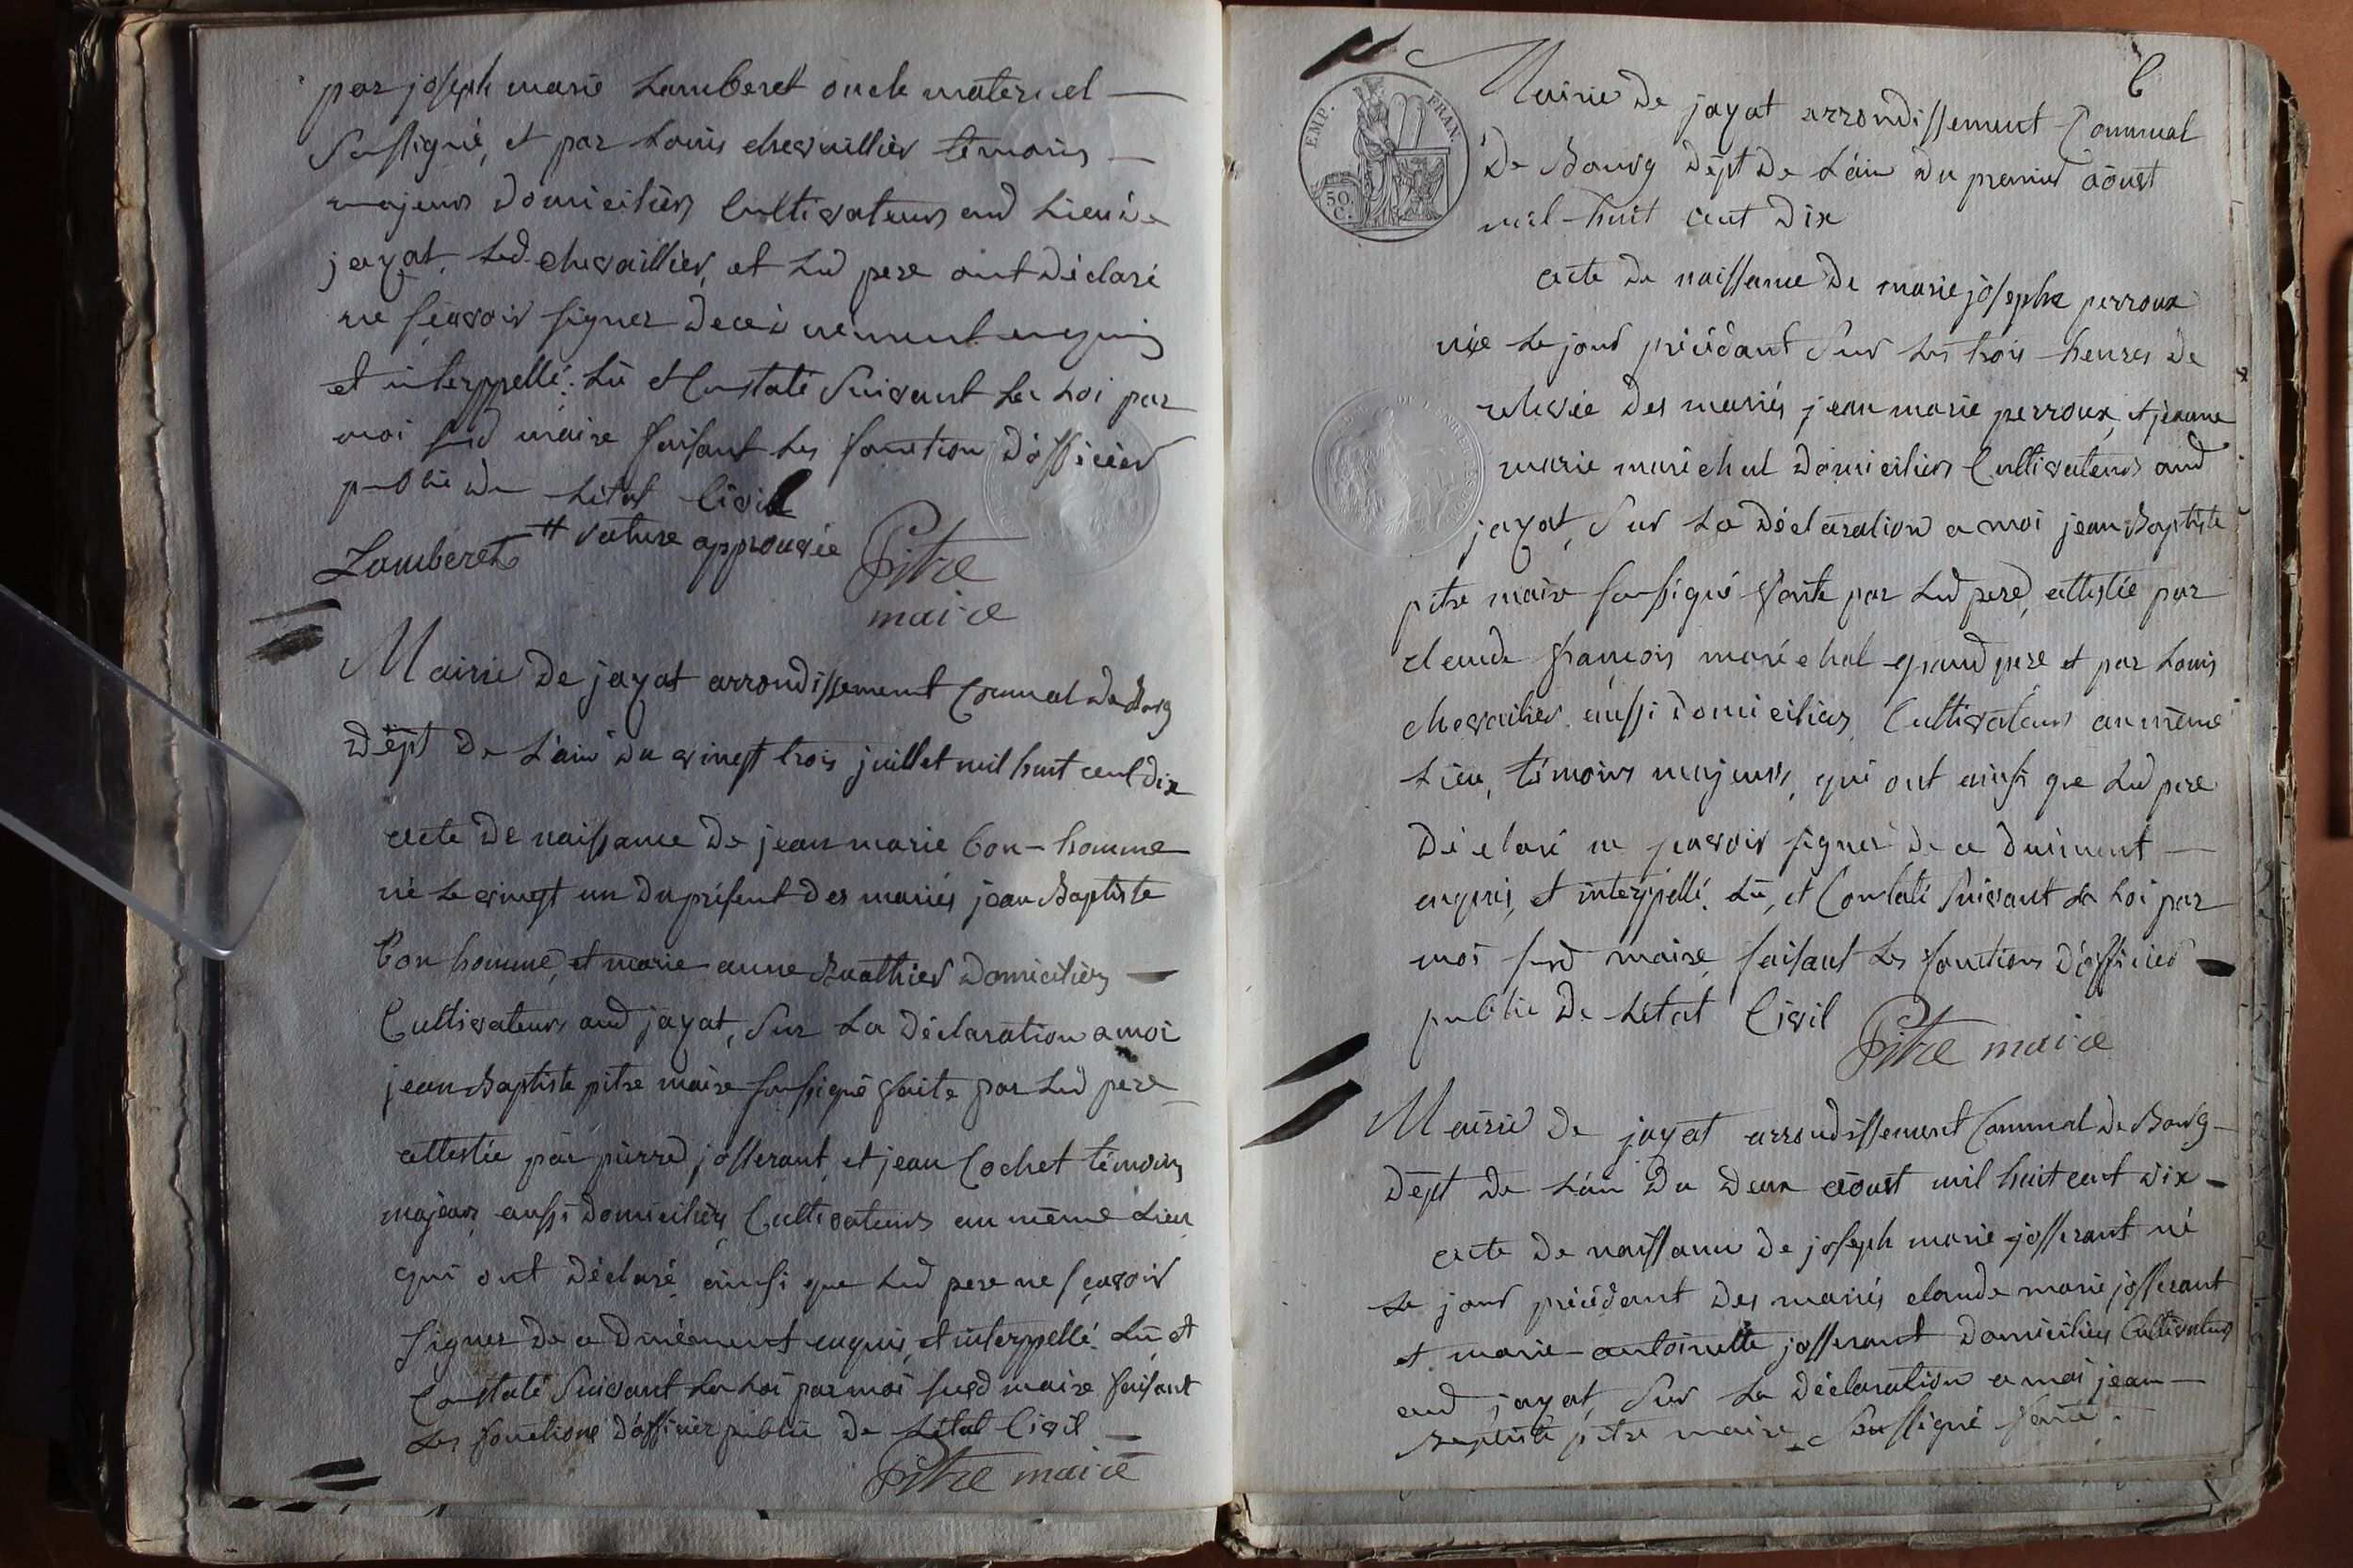 par joseph marie Lamberet oncle maternel —
Soussigné, et par Louis chevaillier témoins —
majeurs domiciliés Cultivateurs aud Lieu de
jayat, Led. chevaillier, et Led pere ont déclaré
ne sçavoir signer de ce enquis
et interppellé. Lu et Constaté Suivant La Loi par
moi susd maire faisant Les fonction d'officier
public de Létat Civil
Lamberet # rature approuvée Pitre
maire
Mairie De jayat arrondissement Comunal de Bourg
Dépt De L'ain du vingt trois juillet mil huit cent dix
acte de naissance de jean marie bon-homme
né Le vingt un du présent des mariés jean Baptiste
bon homme, et marie anne Buathier domiciliés —
Cultivateurs aud jayat, Sur La déclaration a moi
jean Baptiste pitre maire soussigné faite par Led pere
attestée par pierre josserant, et jean Cochet témoins
majeurs aussi domiciliés Cultivateurs au même Lieu
qui ont déclaré ainsi que Led pere ne sçavoir
signer de ce duément enquis, et interppellé. Lu, et
Constaté Suivant La Loi par moi susd maire faisant
Les fonctions d'officier public de Létat Civil —
Pitre maire
6
Mairie De jayat arrondissement Communal
De Bourg Dépt De L'ain Du premier aoust
mil-huit cent dix
EMP. FRAN.
50 C.
acte de naissance de marie josephe perroux
née Le jour précédant Sur Les trois heures de
relevée des mariés jean marie perroux, et jeanne
marie marechal domiciliés Cultivateurs aud
jayat, Sur La déclaration a moi jean Baptiste
pitre maire soussigné faite par Led pere, attestée par
claude françois maréchal grand pere et par Louis
chevailier aussi domiciliés Cultivateurs au même
Lieu, témoins majeurs, qui ont ainsi que Led pere
déclaré ne sçavoir signer de ce duement —
enquis, et interppellé. Lu, et Contaté Suivant La Loi par
moi susd maire faisant Les fonctions d'officier
public de Létat Civil Pitre maire
Mairie de jayat arrondissement Communal de Bourg
Dépt de L'ain du deux aoust mil huit cent dix —
acte de naissance de joseph marie josserant né
Le jour précédant des mariés claude marie josserant
et marie-antoinette josserant domiciliés Cultivateurs
aud jayat, Sur La déclaration a moi jean —
Baptiste pitre maire Soussigné faite